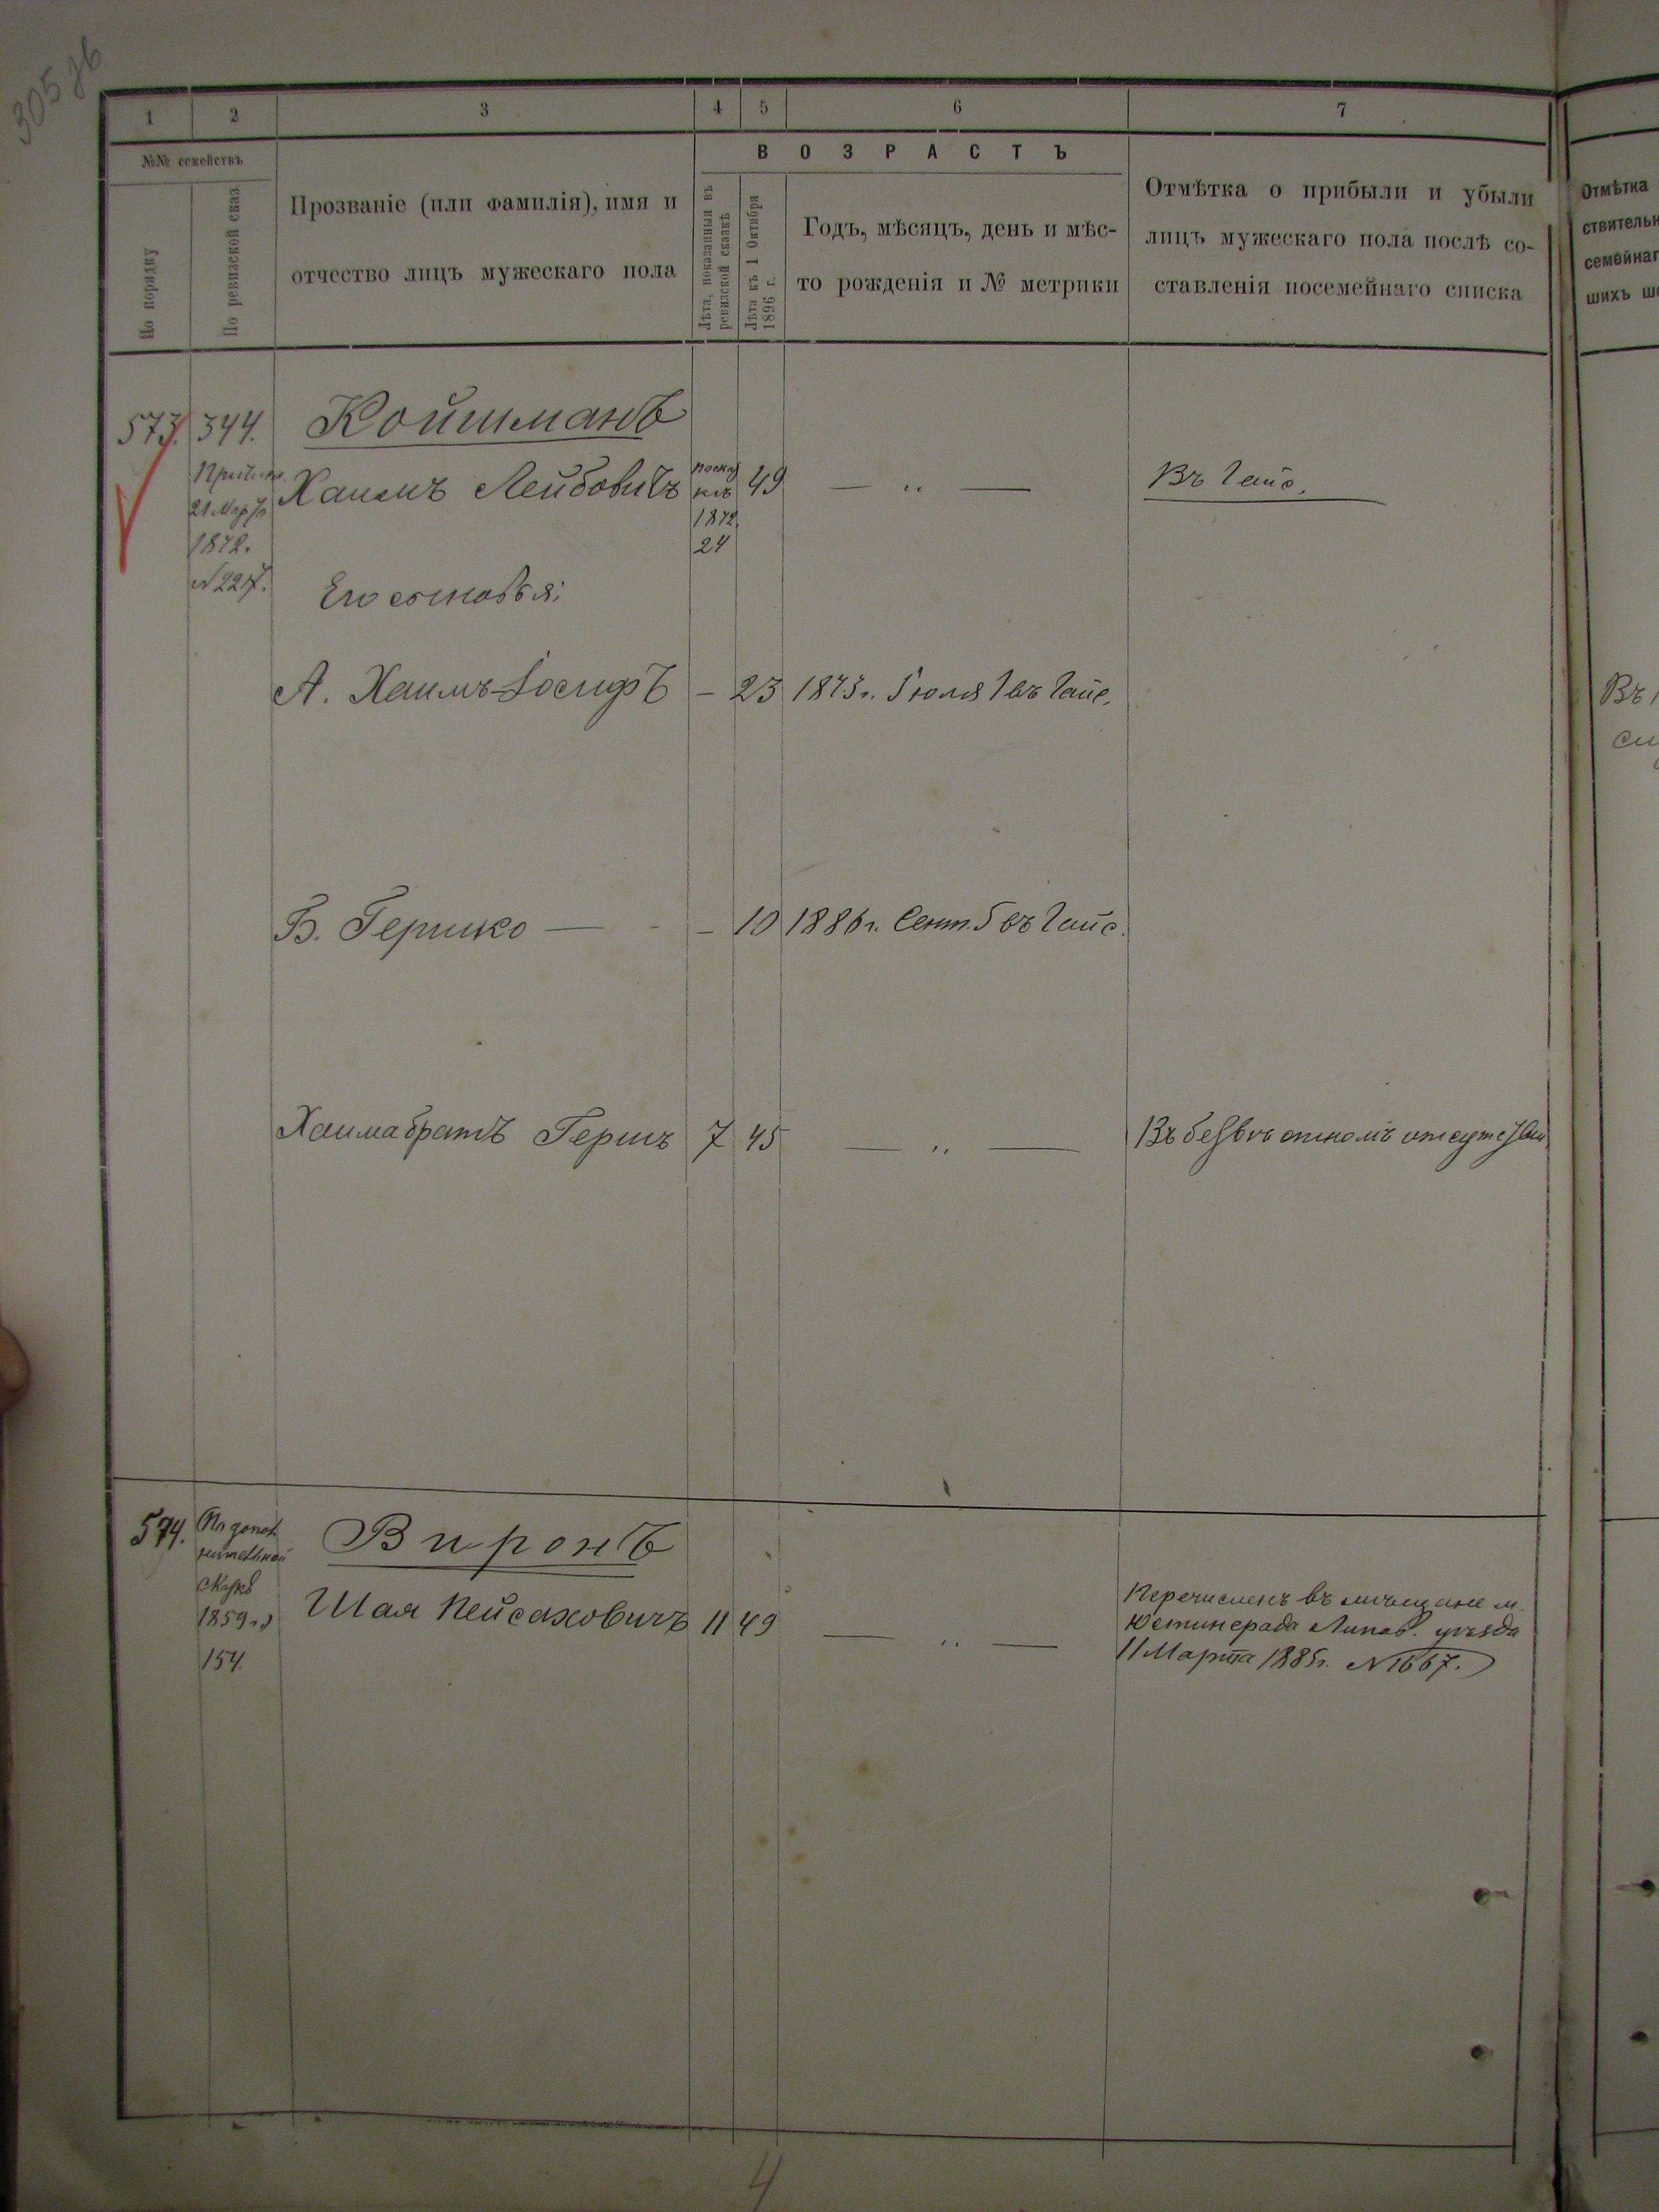 305 об
1 2 3 4 5 6 7
№№ семействъ
По порядку
По ревизской сказ
Прозваніе (или фамилія), имя и
отчество лицъ мужескаго пола
ВОЗРАСТЪ
Лѣта, показанныя въ
ревизской сказкѣ
Лѣта къ 1 Октября
1896 г.
Годъ, мѣсяцъ, день и мѣс-
то рожденія и № метрики
Отмѣтка о прибыли и убыли
лицъ мужескаго пола послѣ со-
ставленія посемейнаго списка
Отмѣтка
ствительн
семейнаг
шихъ
573. 344. Койшманъ
Хаимъ Лейбовичъ 49 — „ — Въ Гайс.
21 Мар
1872.
1872
24
Его сыновья:
А. Хаимъ-Іосифъ – 23 1873 г. Іюля 1 въ Гайс.
Въ
Б. Гершко — – 10 1886 г. Сент. 5 въ Гайс.
Хаима братъ Гершъ 7 45 — „ — Въ безвѣстномъ отсутствіи
574. Виронъ
По допол
нительной
сказкѣ
1859 г.
154.
Шая Пейсаховичъ 11 49 — „ —
Перечисленъ въ мѣщане м.
Юстинграда Липов. уѣзда
11 Марта 1885 г. № 1667.
4